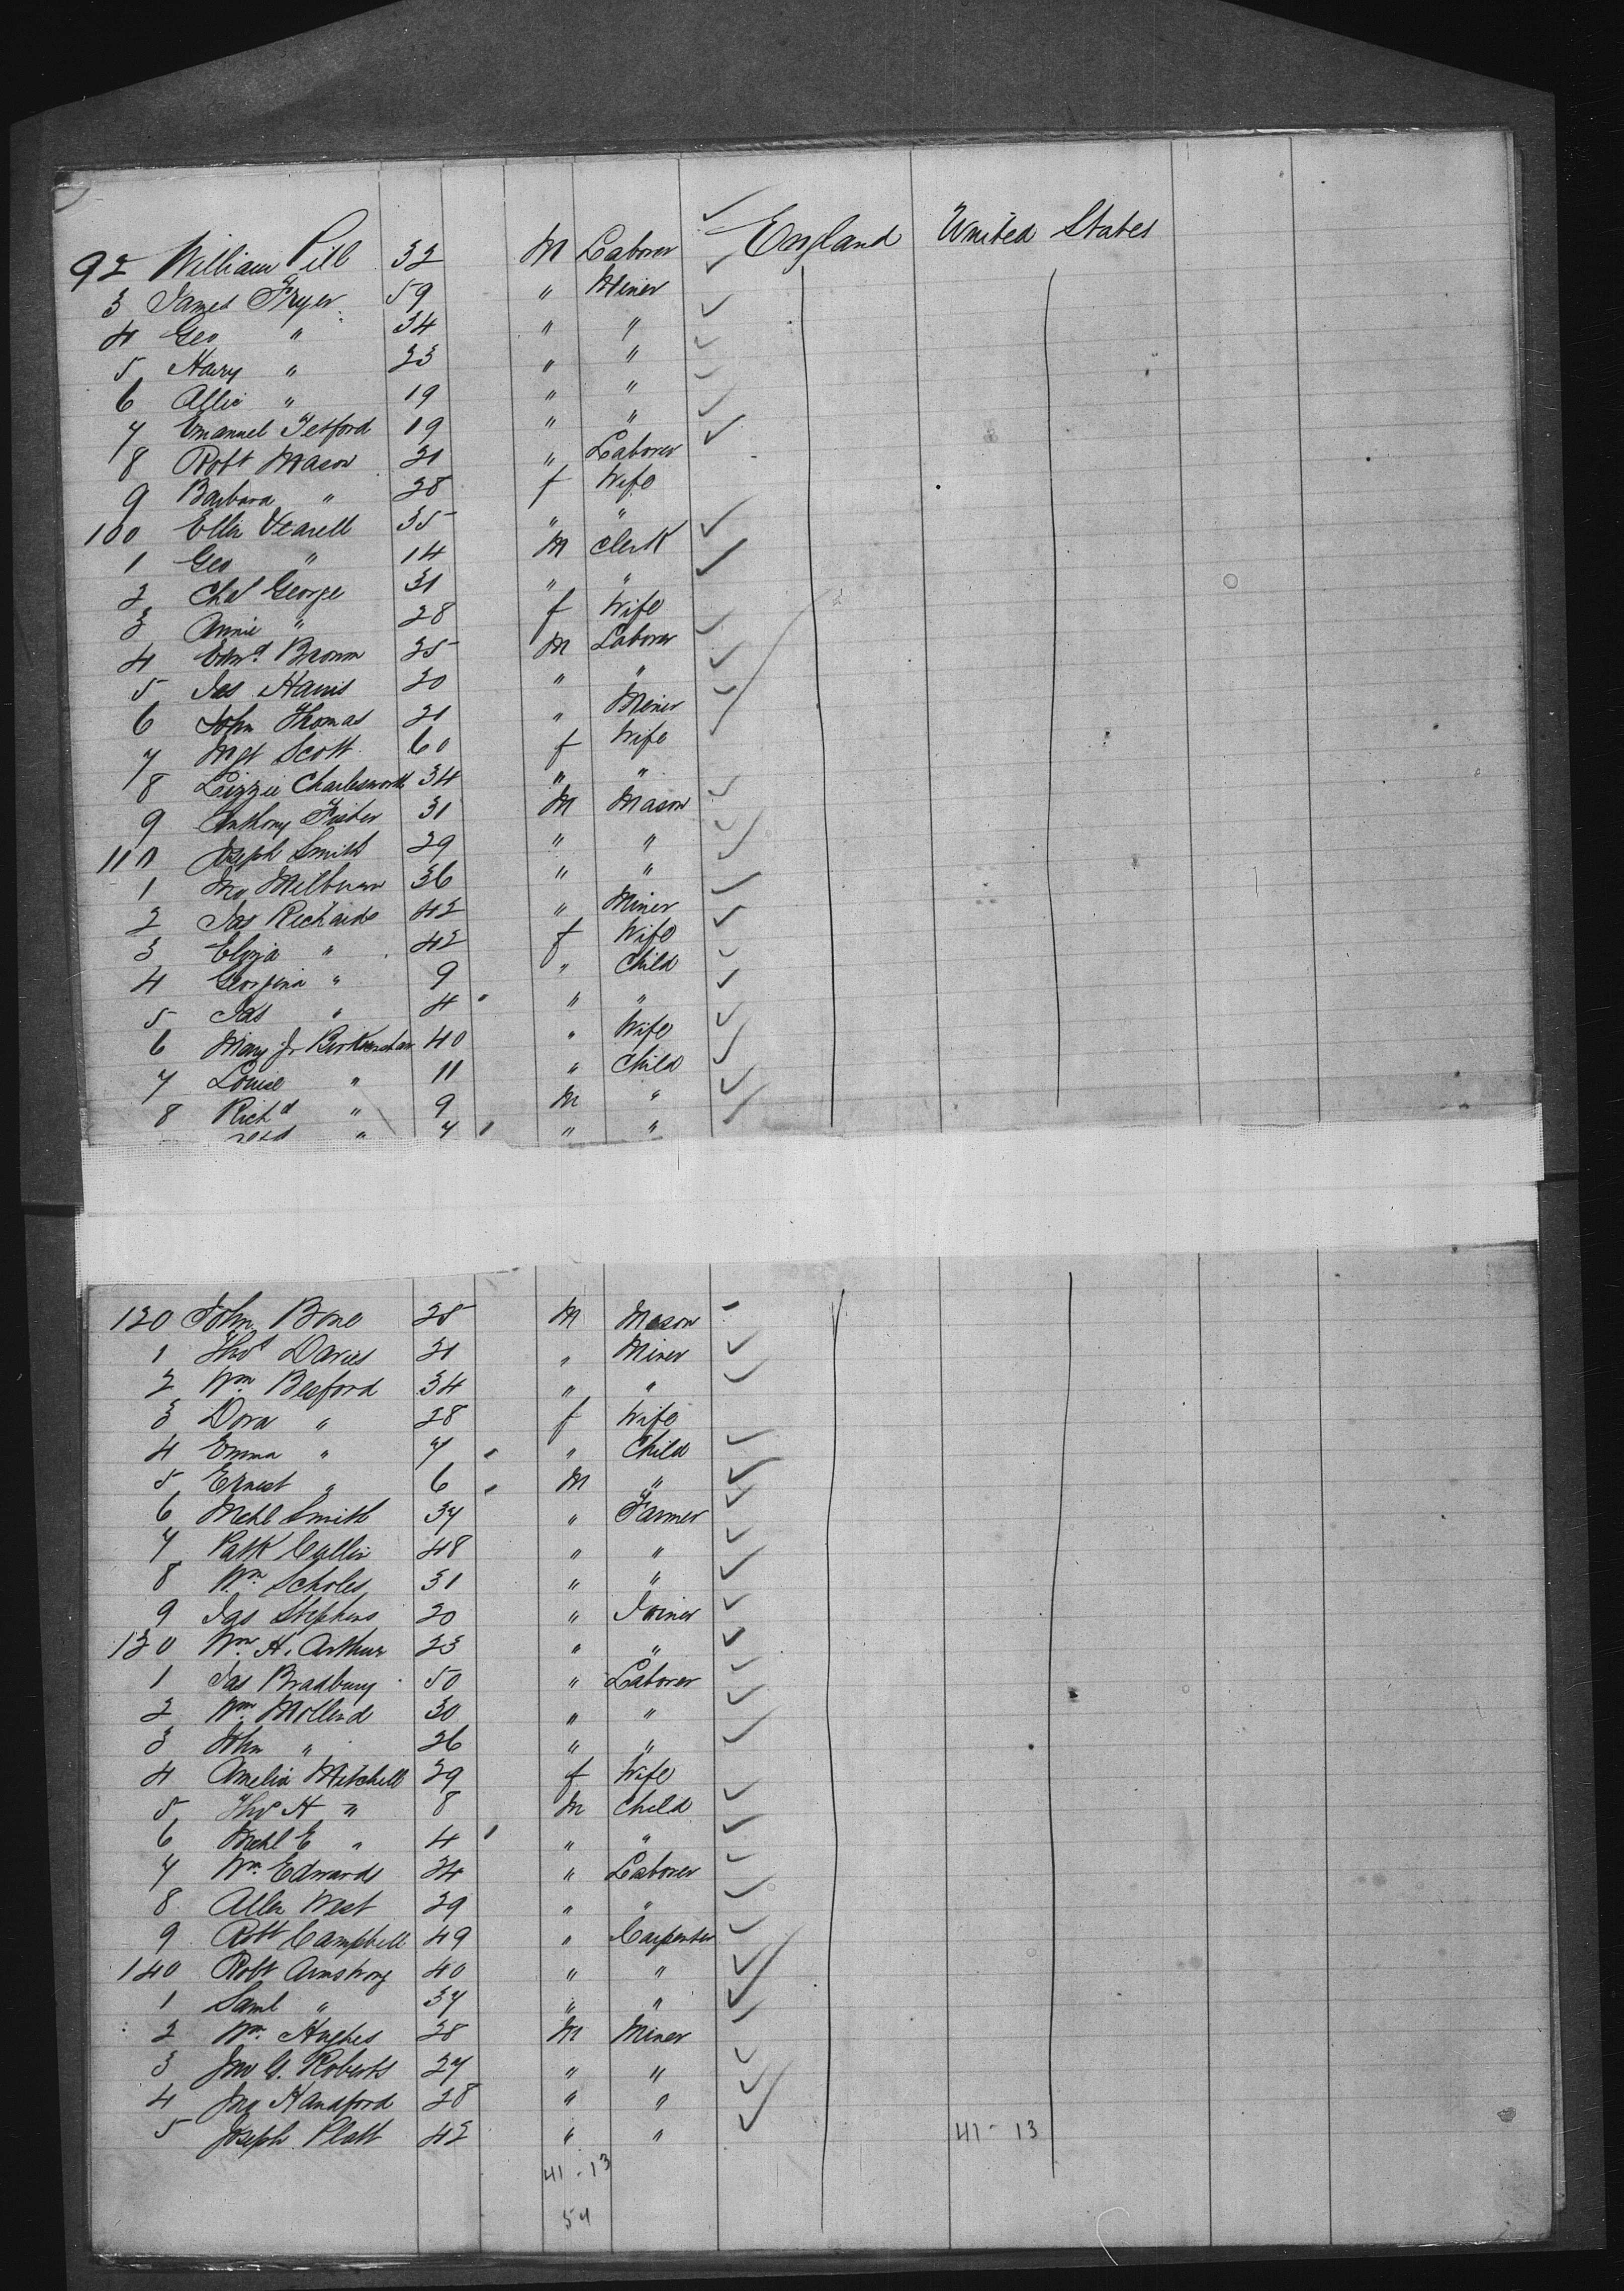 92 William Pill 32 M Laborer England United States
3 James Fryer 59 " Miner
4 Geo " 34 " "
5 Harry " 23 " "
6 Allie " 19 " "
7 Emanuel Tetford 19 " "
8 Robt Mason 31 " Laborer
9 Barbara " 28 f Wife
100 Ellen 35 " "
1 Geo " 14 M Clerk
2 Chas George 31 " "
3 Annie " 28 f Wife
4 Edwd Brown 25 M Laborer
5 Jas Harris 20 " "
6 John Thomas 21 " Miner
7 Mgt Scott 60 f Wife
8 Lizzie Charlesworth 34 " "
9 Anthony Fister 31 M Mason
110 Joseph Smith 29 " "
1 Jno Milburn 36 " "
2 Jas Richards 42 " Miner
3 Eliza " 42 f Wife
4 Georgina " 9 " Child
5 Jas " 4 " "
6 Mary J. Birkenshaw 40 " Wife
7 Louise " 11 " Child
8 Richd " 9 M "
" 7 " "
120 John Bone 25 M Mason
1 Thos Davies 21 " Miner
2 Wm Besford 34 " "
3 Dora " 28 f Wife
4 Emma " 7 " Child
5 Ernest " 6 M "
6 Mchl Smith 37 " Farmer
7 Patk Cullin 48 " "
8 Wm Scholes 31 " "
9 Jas Stephens 20 " Joiner
130 Wm H. Arthur 23 " "
1 Jas Bradbury 50 " Laborer
2 Wm Mollend 30 " "
3 John " 26 " "
4 Amelia Mitchell 29 f Wife
5 Thos H " 8 M Child
6 Mchl E " 4 " "
7 Wm Edwards 24 " Laborer
8 Allen West 29 " "
9 Robt Campbell 49 " Carpenter
140 Robt Armstrong 40 " "
1 Saml " 37 " "
2 Wm Hughes 28 M Miner
3 Jno G. Roberts 27 " "
4 Jno Handford 28 " "
5 Joseph Platt 42 " " 41-13
41-13
54